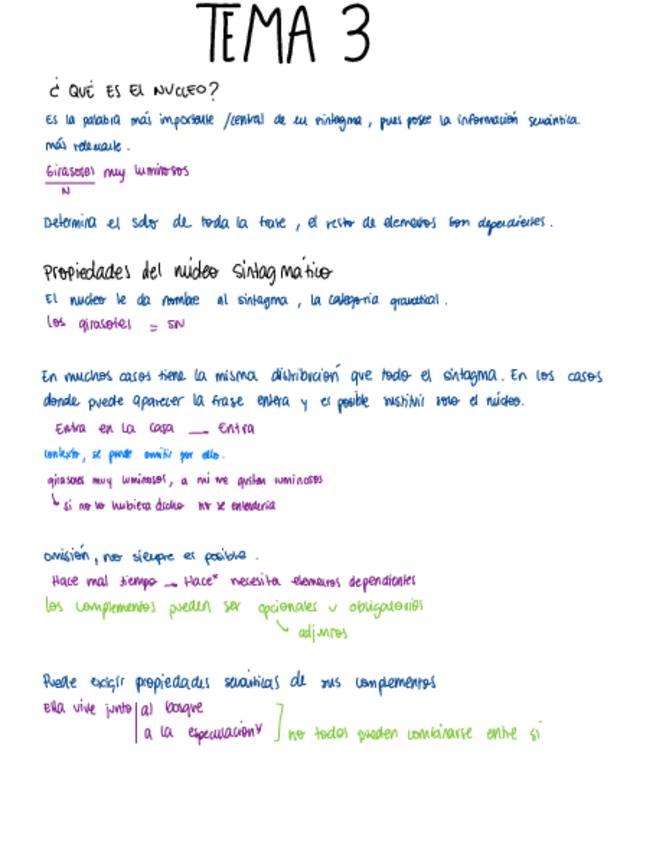 TEMA 3
¿ QUÉ ES El NUCLEO?
Es la palabra más importante /central de su sintagma, pues posee la información semántica.
más relevante.
Girasoles muy luminosos
N
Determina el sdo de toda la frase, el resto de elementos son dependientes.
Propiedades del núcleo sintagmático
El nucleo le da nombre al sintagma, la categoría gramatical.
los girasoles = SN
En muchos casos tiene la misma distribución que todo el sintagma. En los casos
donde puede aparecer la frase entera y es posible sustituir solo el núcleo.
Entra en la casa — Entra
contexto, se puede omitir por ello.
girasoles muy luminosos, a mi me gustan luminosos
si no lo hubiera dicho no se entendería
omisión, no siempre es posible.
Hace mal tiempo — Hace* necesita elementos dependientes
los complementos pueden ser opcionales u obligatorios
adjuntos
Puede exigir propiedades semánticas de sus complementos
ella vive junto al bosque
a la especulación*
no todos pueden combinarse entre si